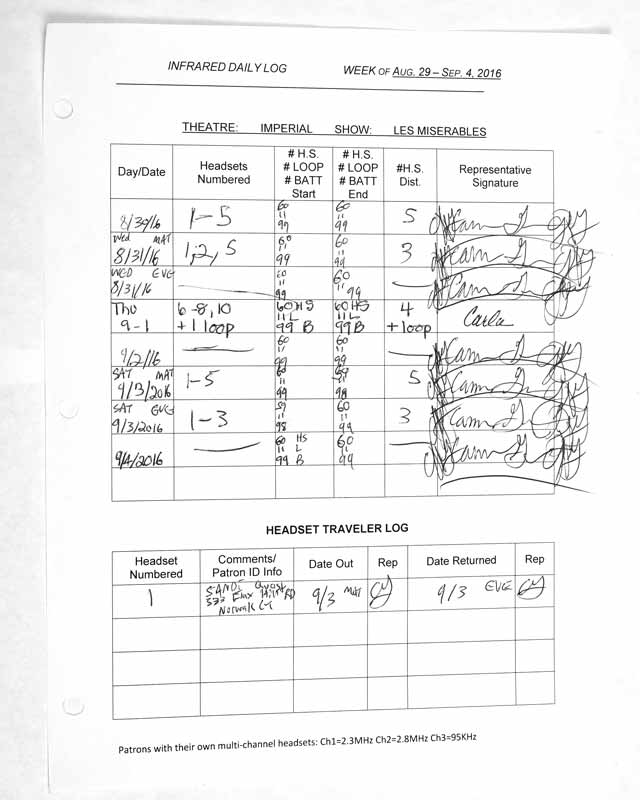 INFRARED DAILY LOG WEEK OF AUG. 29 – SEP. 4, 2016
THEATRE: IMPERIAL SHOW: LES MISERABLES
Day/Date
Headsets
Numbered
# H.S.
# LOOP
# BATT
Start
# H.S.
# LOOP
# BATT
End
#H.S.
Dist.
Representative
Signature
8/30/16 1-5 60 11 99 60 11 99 5
Wed MAT
8/31/16 1,2,5 60 11 99 60 11 99 3
WED EVG
8/31/16 — 60 11 99 60 11 99 —
Thu 6-8, 10 60 HS 60 HS 4
9-1 +1 loop 11 L 99 B 11 L 99 B + loop Carla
9/2/16 — 60 11 99 60 11 99 —
SAT MAT
9/3/2016 1-5 60 11 99 11 98 5
SAT EVG
9/3/2016 1-3 59 11 98 60 11 99 3
9/4/2016 — 60 HS 11 L 99 B 60 11 99 —
HEADSET TRAVELER LOG
Headset
Numbered
Comments/
Patron ID Info
Date Out
Rep
Date Returned
Rep
1 9/3 MAT CY 9/3 EVE CY
Norwalk CT
Patrons with their own multi-channel headsets: Ch1=2.3MHz Ch2=2.8MHz Ch3=95KHz